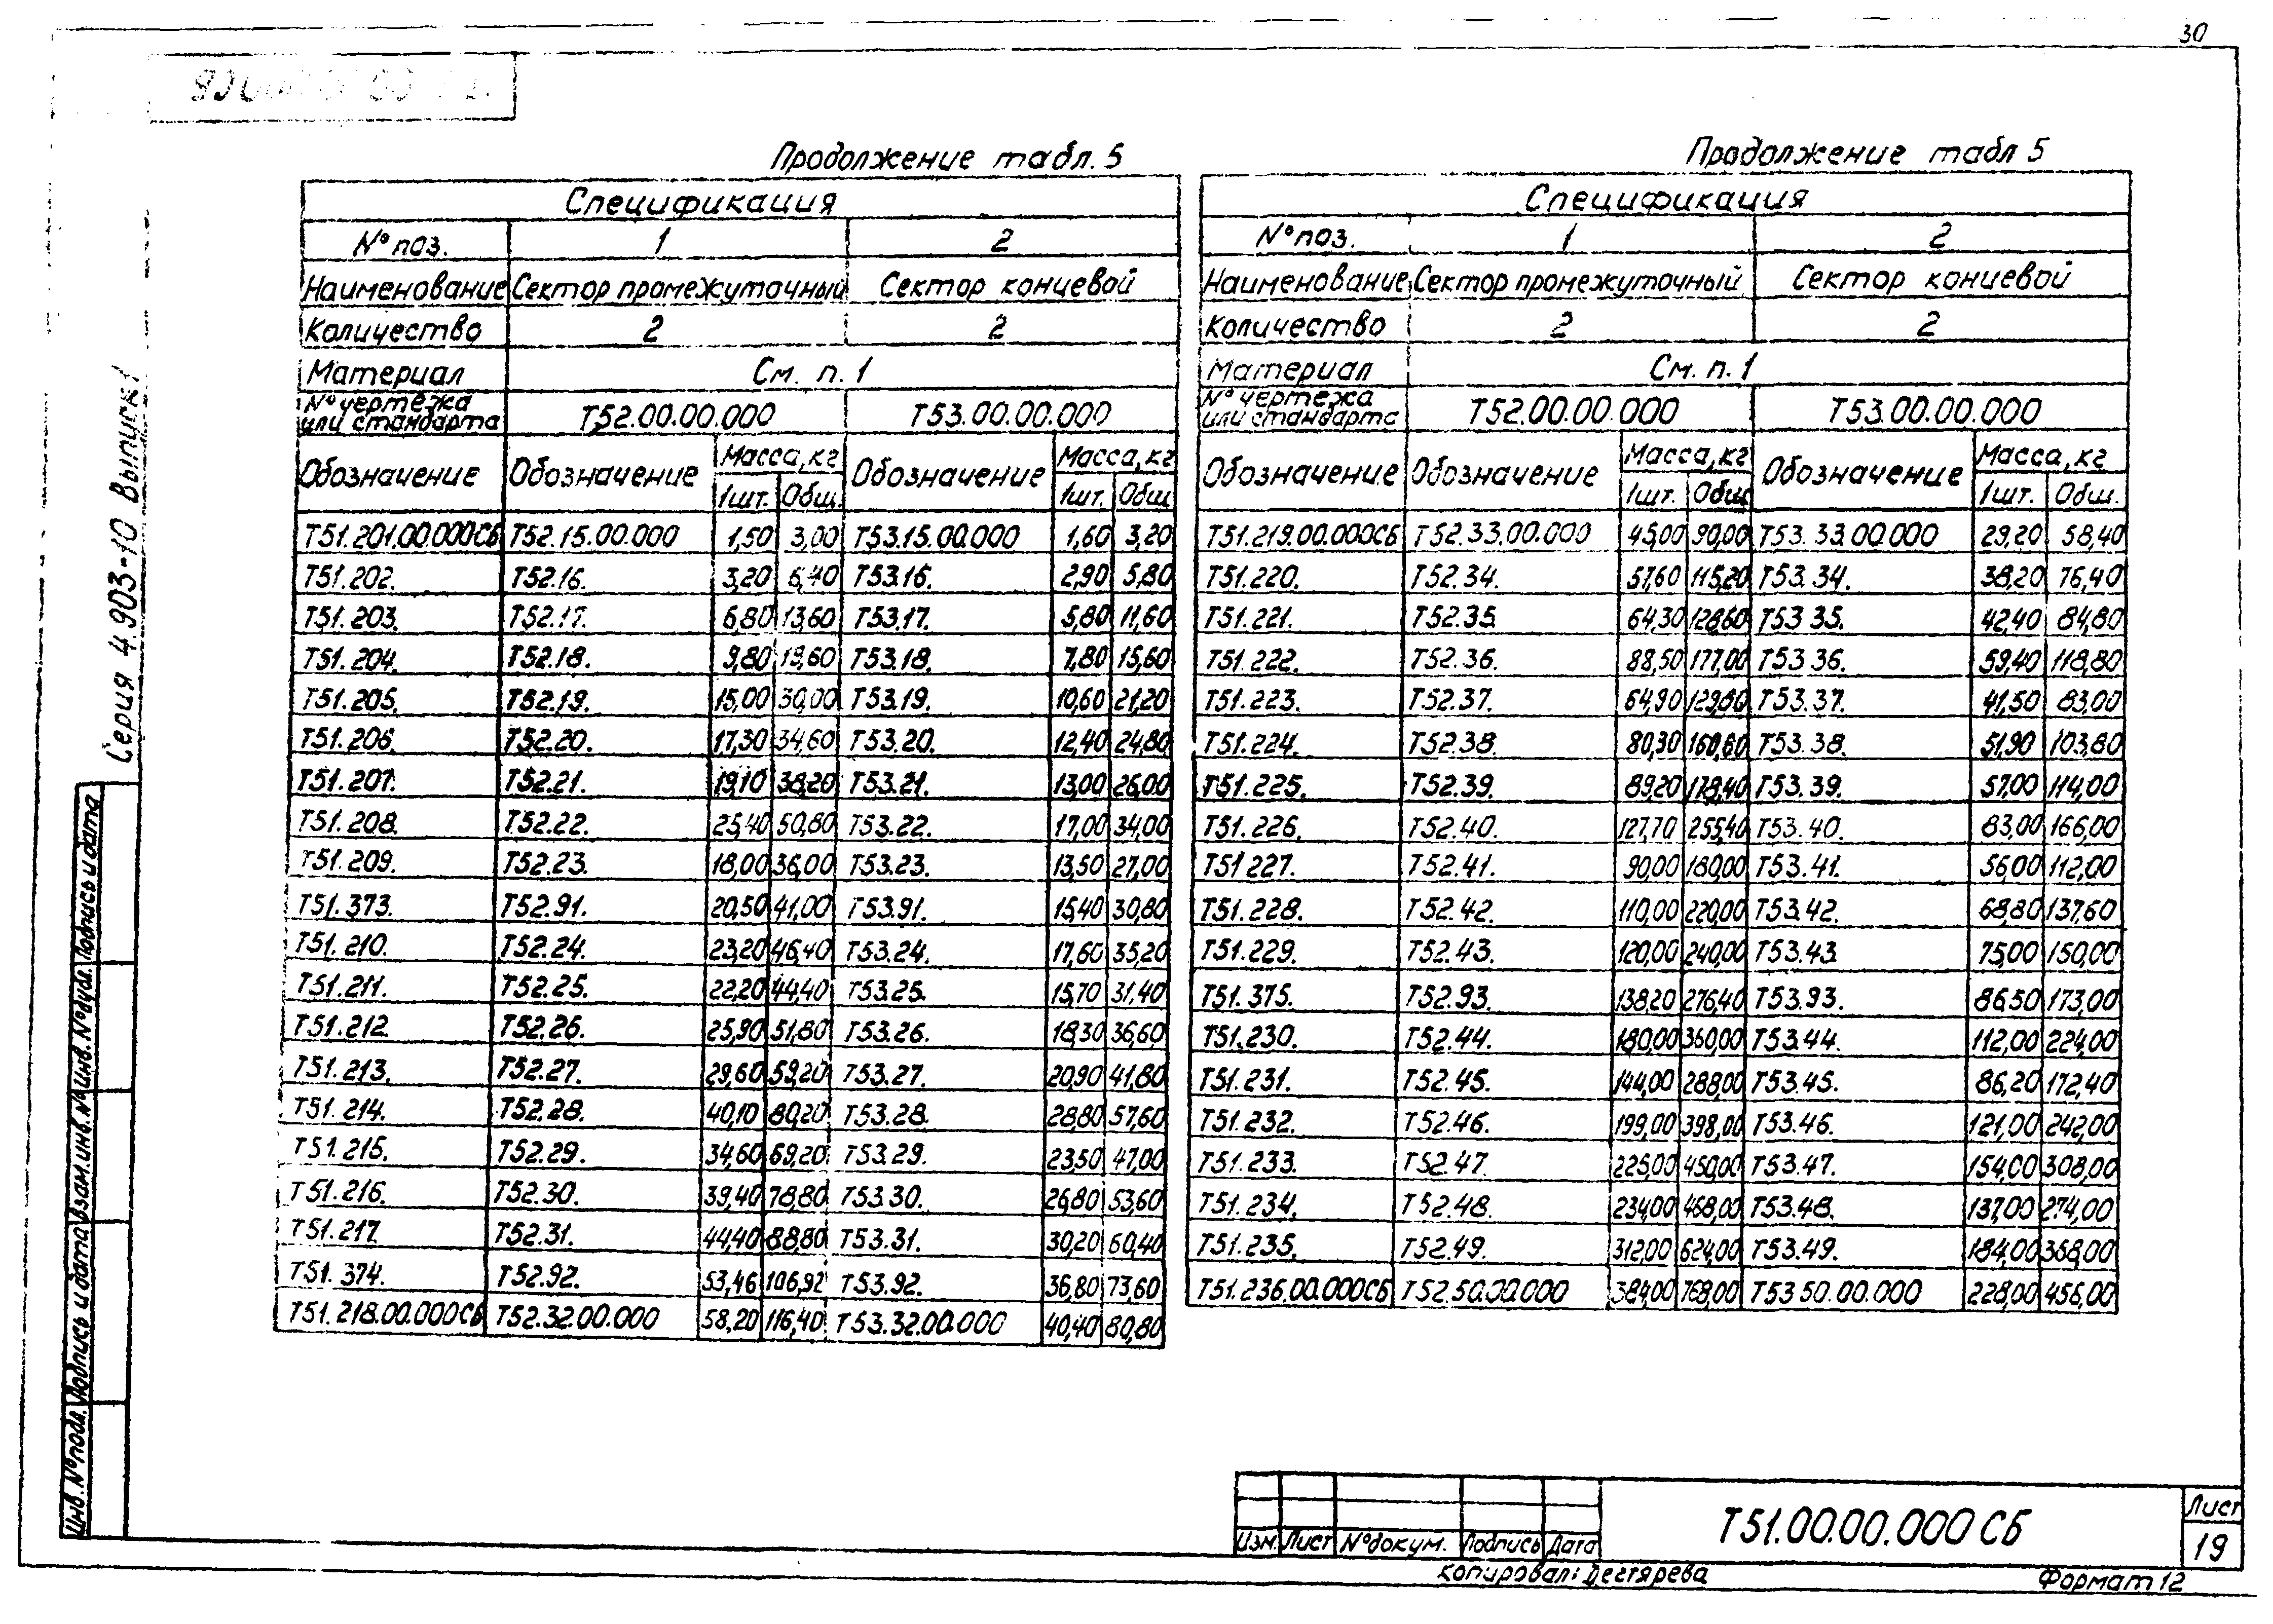 30
Продолжение табл. 5
Спецификация
№ поз. 1 2
Наименование Сектор промежуточный Сектор концевой
Количество 2 2
Материал См. п. 1
№ чертежа или стандарта Т52.00.00.000 Т53.00.00.000
Обозначение Обозначение Масса, кг Обозначение Масса, кг
1шт. Общ. 1шт. Общ.
Т51.201.00.000СБ Т52.15.00.000 1,50 3,00 Т53.15.00.000 1,60 3,20
Т51.202. Т52.16. 3,20 6,40 Т53.16. 2,90 5,80
Т51.203. Т52.17. 6,80 13,60 Т53.17. 5,80 11,60
Т51.204. Т52.18. 9,80 19,60 Т53.18. 7,80 15,60
Т51.205. Т52.19. 15,00 30,00 Т53.19. 10,60 21,20
Т51.206. Т52.20. 17,30 34,60 Т53.20. 12,40 24,80
Т51.207. Т52.21. 19,10 38,20 Т53.21. 13,00 26,00
Т51.208. Т52.22. 25,40 50,80 Т53.22. 17,00 34,00
Т51.209. Т52.23. 18,00 36,00 Т53.23. 13,50 27,00
Т51.373. Т52.91. 20,50 41,00 Т53.91. 15,40 30,80
Т51.210. Т52.24. 23,20 46,40 Т53.24. 17,60 35,20
Т51.211. Т52.25. 22,20 44,40 Т53.25. 15,70 31,40
Т51.212. Т52.26. 25,90 51,80 Т53.26. 18,30 36,60
Т51.213. Т52.27. 29,60 59,20 Т53.27. 20,90 41,80
Т51.214. Т52.28. 40,10 80,20 Т53.28. 28,80 57,60
Т51.215. Т52.29. 34,60 69,20 Т53.29. 23,50 47,00
Т51.216. Т52.30. 39,40 78,80 Т53.30. 26,80 53,60
Т51.217. Т52.31. 44,40 88,80 Т53.31. 30,20 60,40
Т51.374. Т52.92. 53,46 106,92 Т53.92. 36,80 73,60
Т51.218.00.000СБ Т52.32.00.000 58,20 116,40 Т53.32.00.000 40,40 80,80
Продолжение табл 5
Спецификация
№ поз. 1 2
Наименование Сектор промежуточный Сектор концевой
Количество 2 2
Материал См. п. 1
№ чертежа или стандарта Т52.00.00.000 Т53.00.00.000
Обозначение Обозначение Масса, кг Обозначение Масса, кг
1шт. Общ 1шт. Общ.
Т51.219.00.000СБ Т52.33.00.000 45,00 90,00 Т53.33.00.000 29,20 58,40
Т51.220. Т52.34. 57,60 115,20 Т53.34. 38,20 76,40
Т51.221. Т52.35. 64,30 128,60 Т53.35. 42,40 84,80
Т51.222. Т52.36. 88,50 177,00 Т53.36. 59,40 118,80
Т51.223. Т52.37. 64,90 129,80 Т53.37. 41,50 83,00
Т51.224. Т52.38. 80,30 160,60 Т53.38. 51,90 103,80
Т51.225. Т52.39. 89,20 178,40 Т53.39. 57,00 114,00
Т51.226. Т52.40. 127,70 255,40 Т53.40. 83,00 166,00
Т51.227. Т52.41. 90,00 180,00 Т53.41. 56,00 112,00
Т51.228. Т52.42. 110,00 220,00 Т53.42. 68,80 137,60
Т51.229. Т52.43. 120,00 240,00 Т53.43. 75,00 150,00
Т51.375. Т52.93. 138,20 276,40 Т53.93. 86,50 173,00
Т51.230. Т52.44. 180,00 360,00 Т53.44. 112,00 224,00
Т51.231. Т52.45. 144,00 288,00 Т53.45. 86,20 172,40
Т51.232. Т52.46. 199,00 398,00 Т53.46. 121,00 242,00
Т51.233. Т52.47. 225,00 450,00 Т53.47. 154,00 308,00
Т51.234. Т52.48. 234,00 468,00 Т53.48. 137,00 274,00
Т51.235. Т52.49. 312,00 624,00 Т53.49. 184,00 368,00
Т51.236.00.000СБ Т52.50.00.000 384,00 768,00 Т53.50.00.000 228,00 456,00
Серия 4.903-10 Выпуск 1
Инв. № подл. Подпись и дата Взам. инв. № Инв. № дубл. Подпись и дата
Изм Лист № докум. Подпись Дата
Т51.00.00.000 СБ
Лист
19
Копировал: Дегтярева
Формат 12